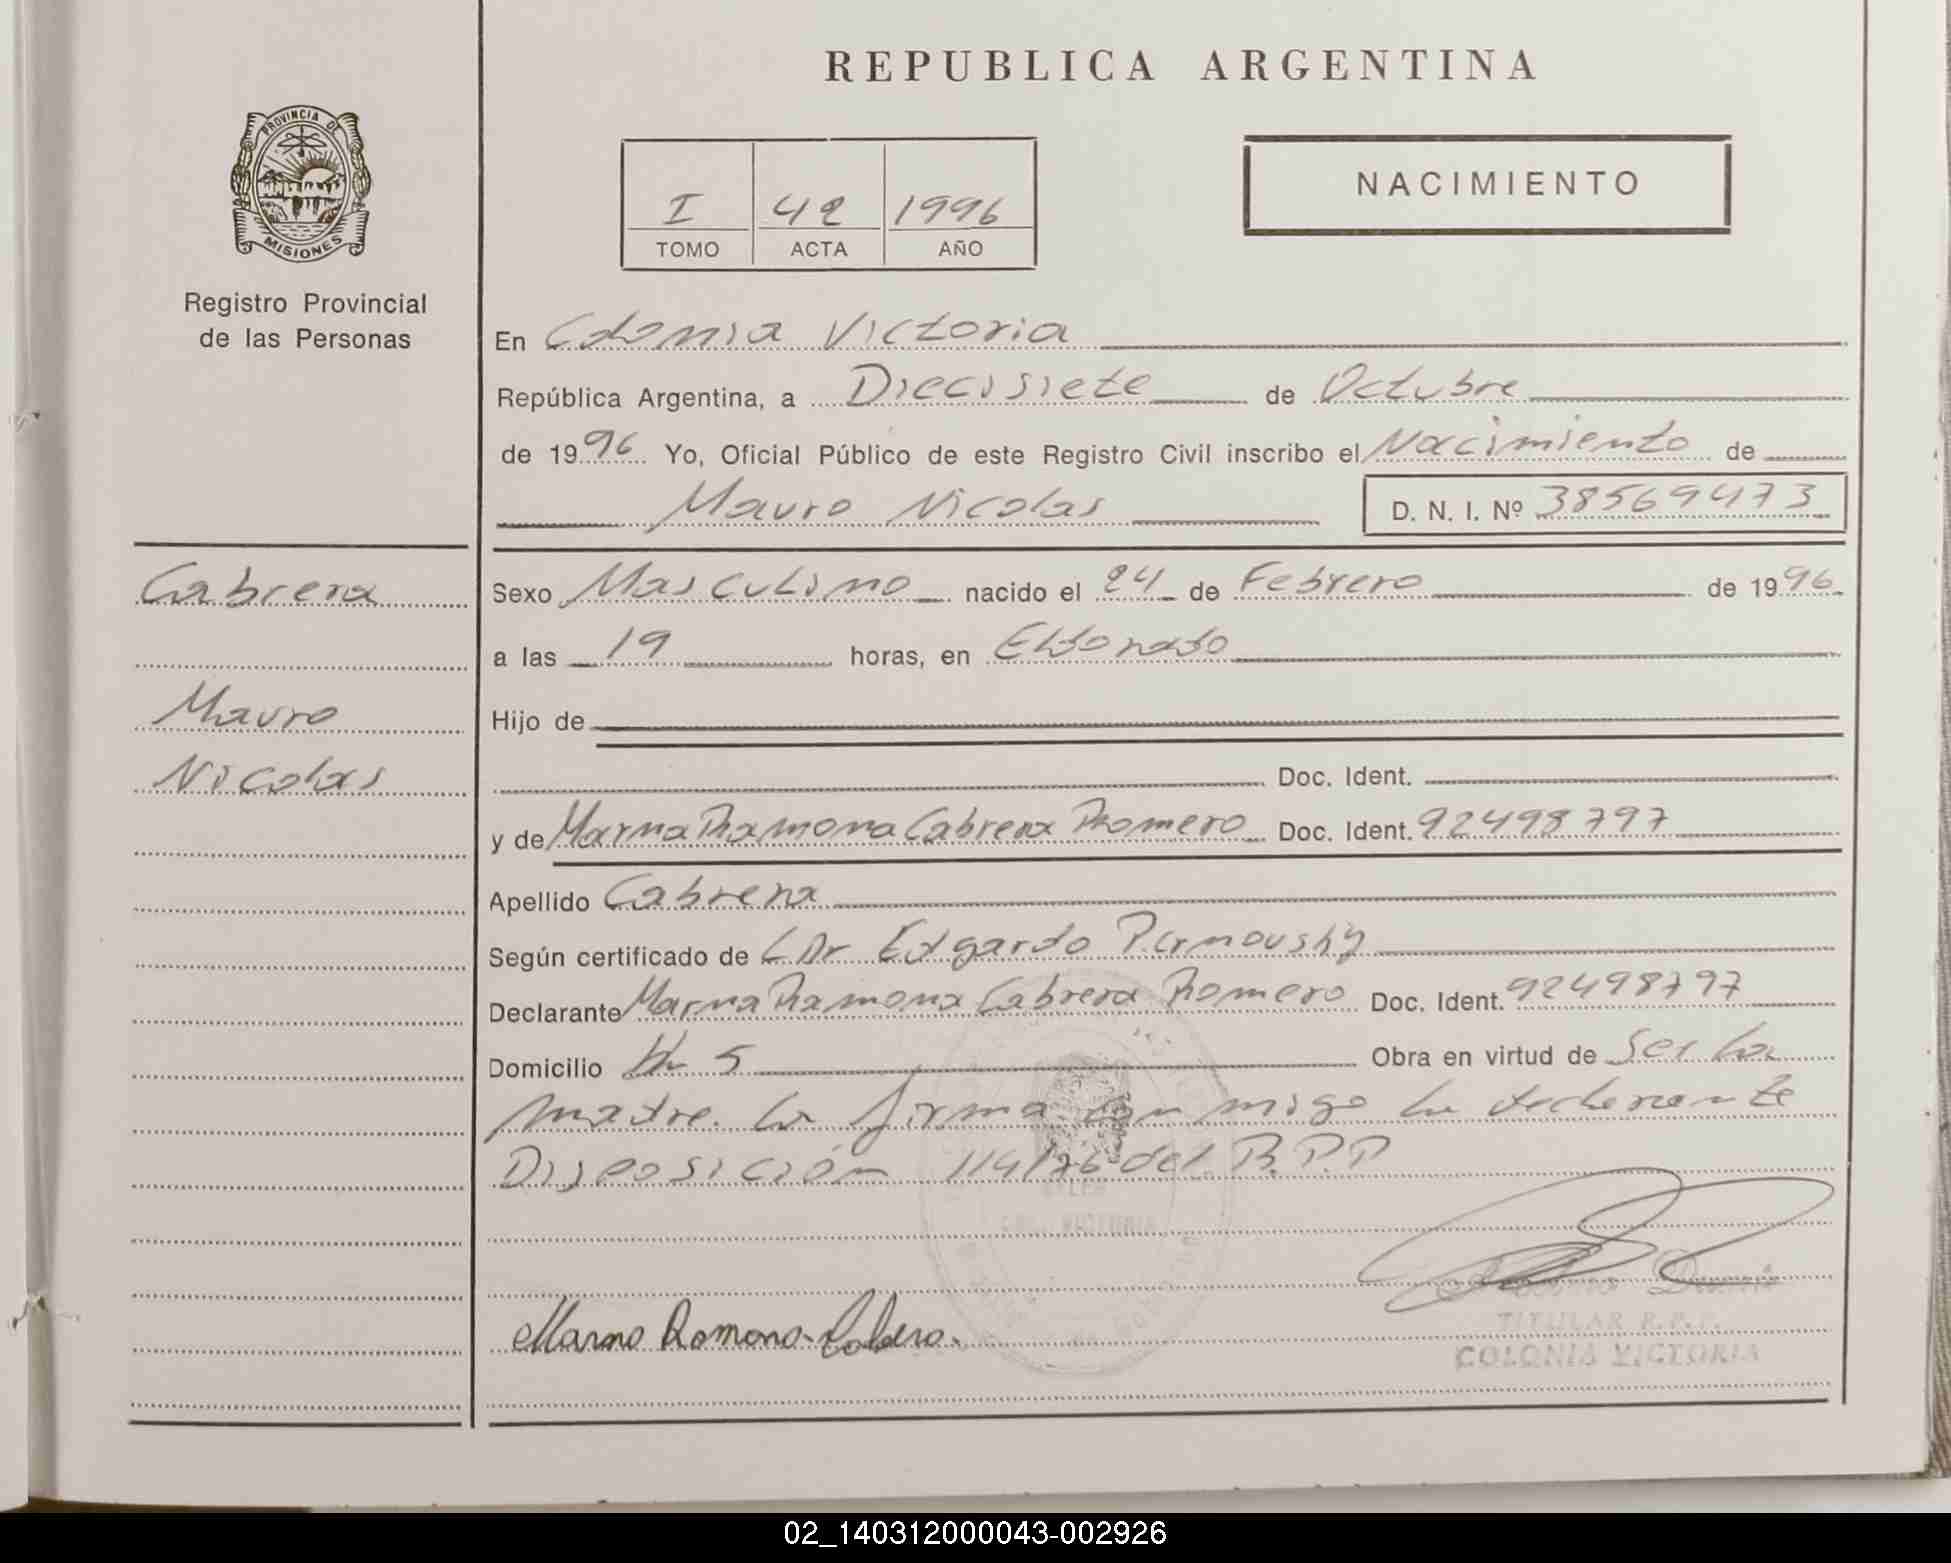 REPUBLICA ARGENTINA
PROVINCIA DE
MISIONES
Registro Provincial
de las Personas
I 42 1996
TOMO ACTA AÑO
NACIMIENTO
En Colonia Victoria
República Argentina, a Diecisiete de Octubre
de 1996 Yo, Oficial Público de este Registro Civil inscribo el Nacimiento de
Mauro Nicolas D. N. I. Nº 38569473
Cabrera
Mauro
Nicolas
Sexo Masculino nacido el 24 de Febrero de 1996
a las 19 horas, en Eldorado
Hijo de
Doc. Ident.
y de Marna Ramona Cabrera Romero Doc. Ident. 92498797
Apellido Cabrera
Según certificado de Dr Edgardo
Declarante Marna Ramona Cabrera Romero Doc. Ident. 92498797
Domicilio 5 Obra en virtud de Ser la
madre. la firma con migo la declarante
Disposición 114/76 del R.P.P
COL. VICTORIA
Ramona
TITULAR R.P.P.
COLONIA VICTORIA
02_140312000043-002926